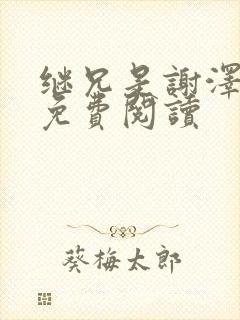 继兄是謝澤
免費閱讀
葵梅太郎